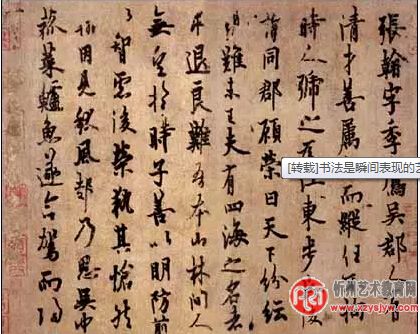 張翰字季鷹吳郡人
清才善屬而縱任
時人號之江東步後
謂同郡顧榮曰天下紛紜
難未已夫有四海之名者
求退良難吾本山林間人
無望於時子善以明防前
以智慮後榮執其愴然
翰因見秋風起乃思吳中
菰菜鱸魚遂命駕而歸
[转载]书法是瞬间表现的艺
忻州艺术教育网
www.xzysjy.com